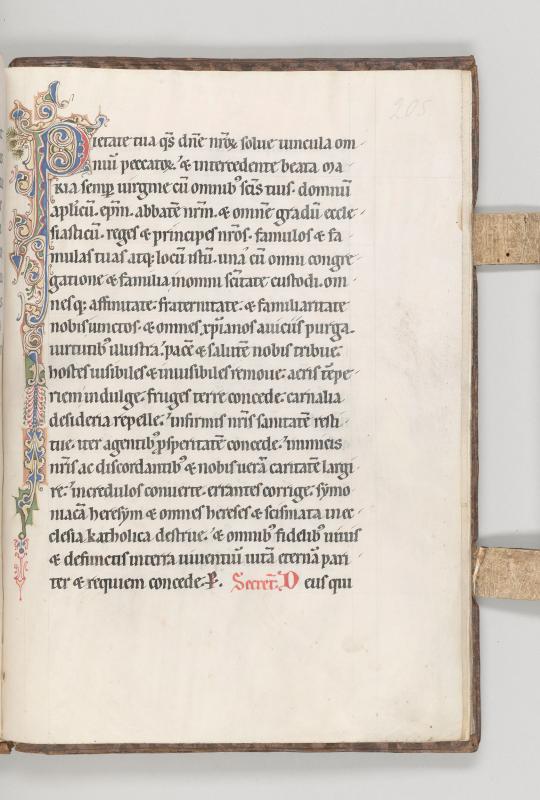 205
Pietate tua q̄s dn̄e nr̄oꝝ solue uincula om
niū peccatoꝝ. & intercedente beata ma
ria semp uirgine cū omnibꝰ sc̄is tuis. domnū
aplicū. ep̄m. abbatē nr̄m. & omnē gradū eccle
siasticū. reges & principes nr̄os. famulos & fa
mulas tuas atq; locū istū. una cū omni congre
gatione & familia in omni sc̄itate custodi. om
nesq; affinitate. fraternitate. & familiaritate
nobis iunctos. & omnes xp̄ianos a uiciis purga.
uirtutibꝰ illustra. pacē & salutē nobis tribue.
hostes uisibiles & inuisibiles remoue. aeris tēpe
riem indulge. fruges terre concede. carnalia
desideria repelle. infirmis nr̄is sanitatē resti
tue. iter agentibꝰ ꝓsperitatē concede. inimicis
nr̄is ac discordantibꝰ & nobis uerā caritatē largi
re. incredulos conuerte. errantes corrige. symo
niacā heresym & omnes hereses & scismata in ec
clesia katholica destrue. & omnibꝰ fidelibꝰ uiuis
& defunctis in terra uiuentiū uitā eternā pari
ter & requiem concede. P. Secret. Deus qui